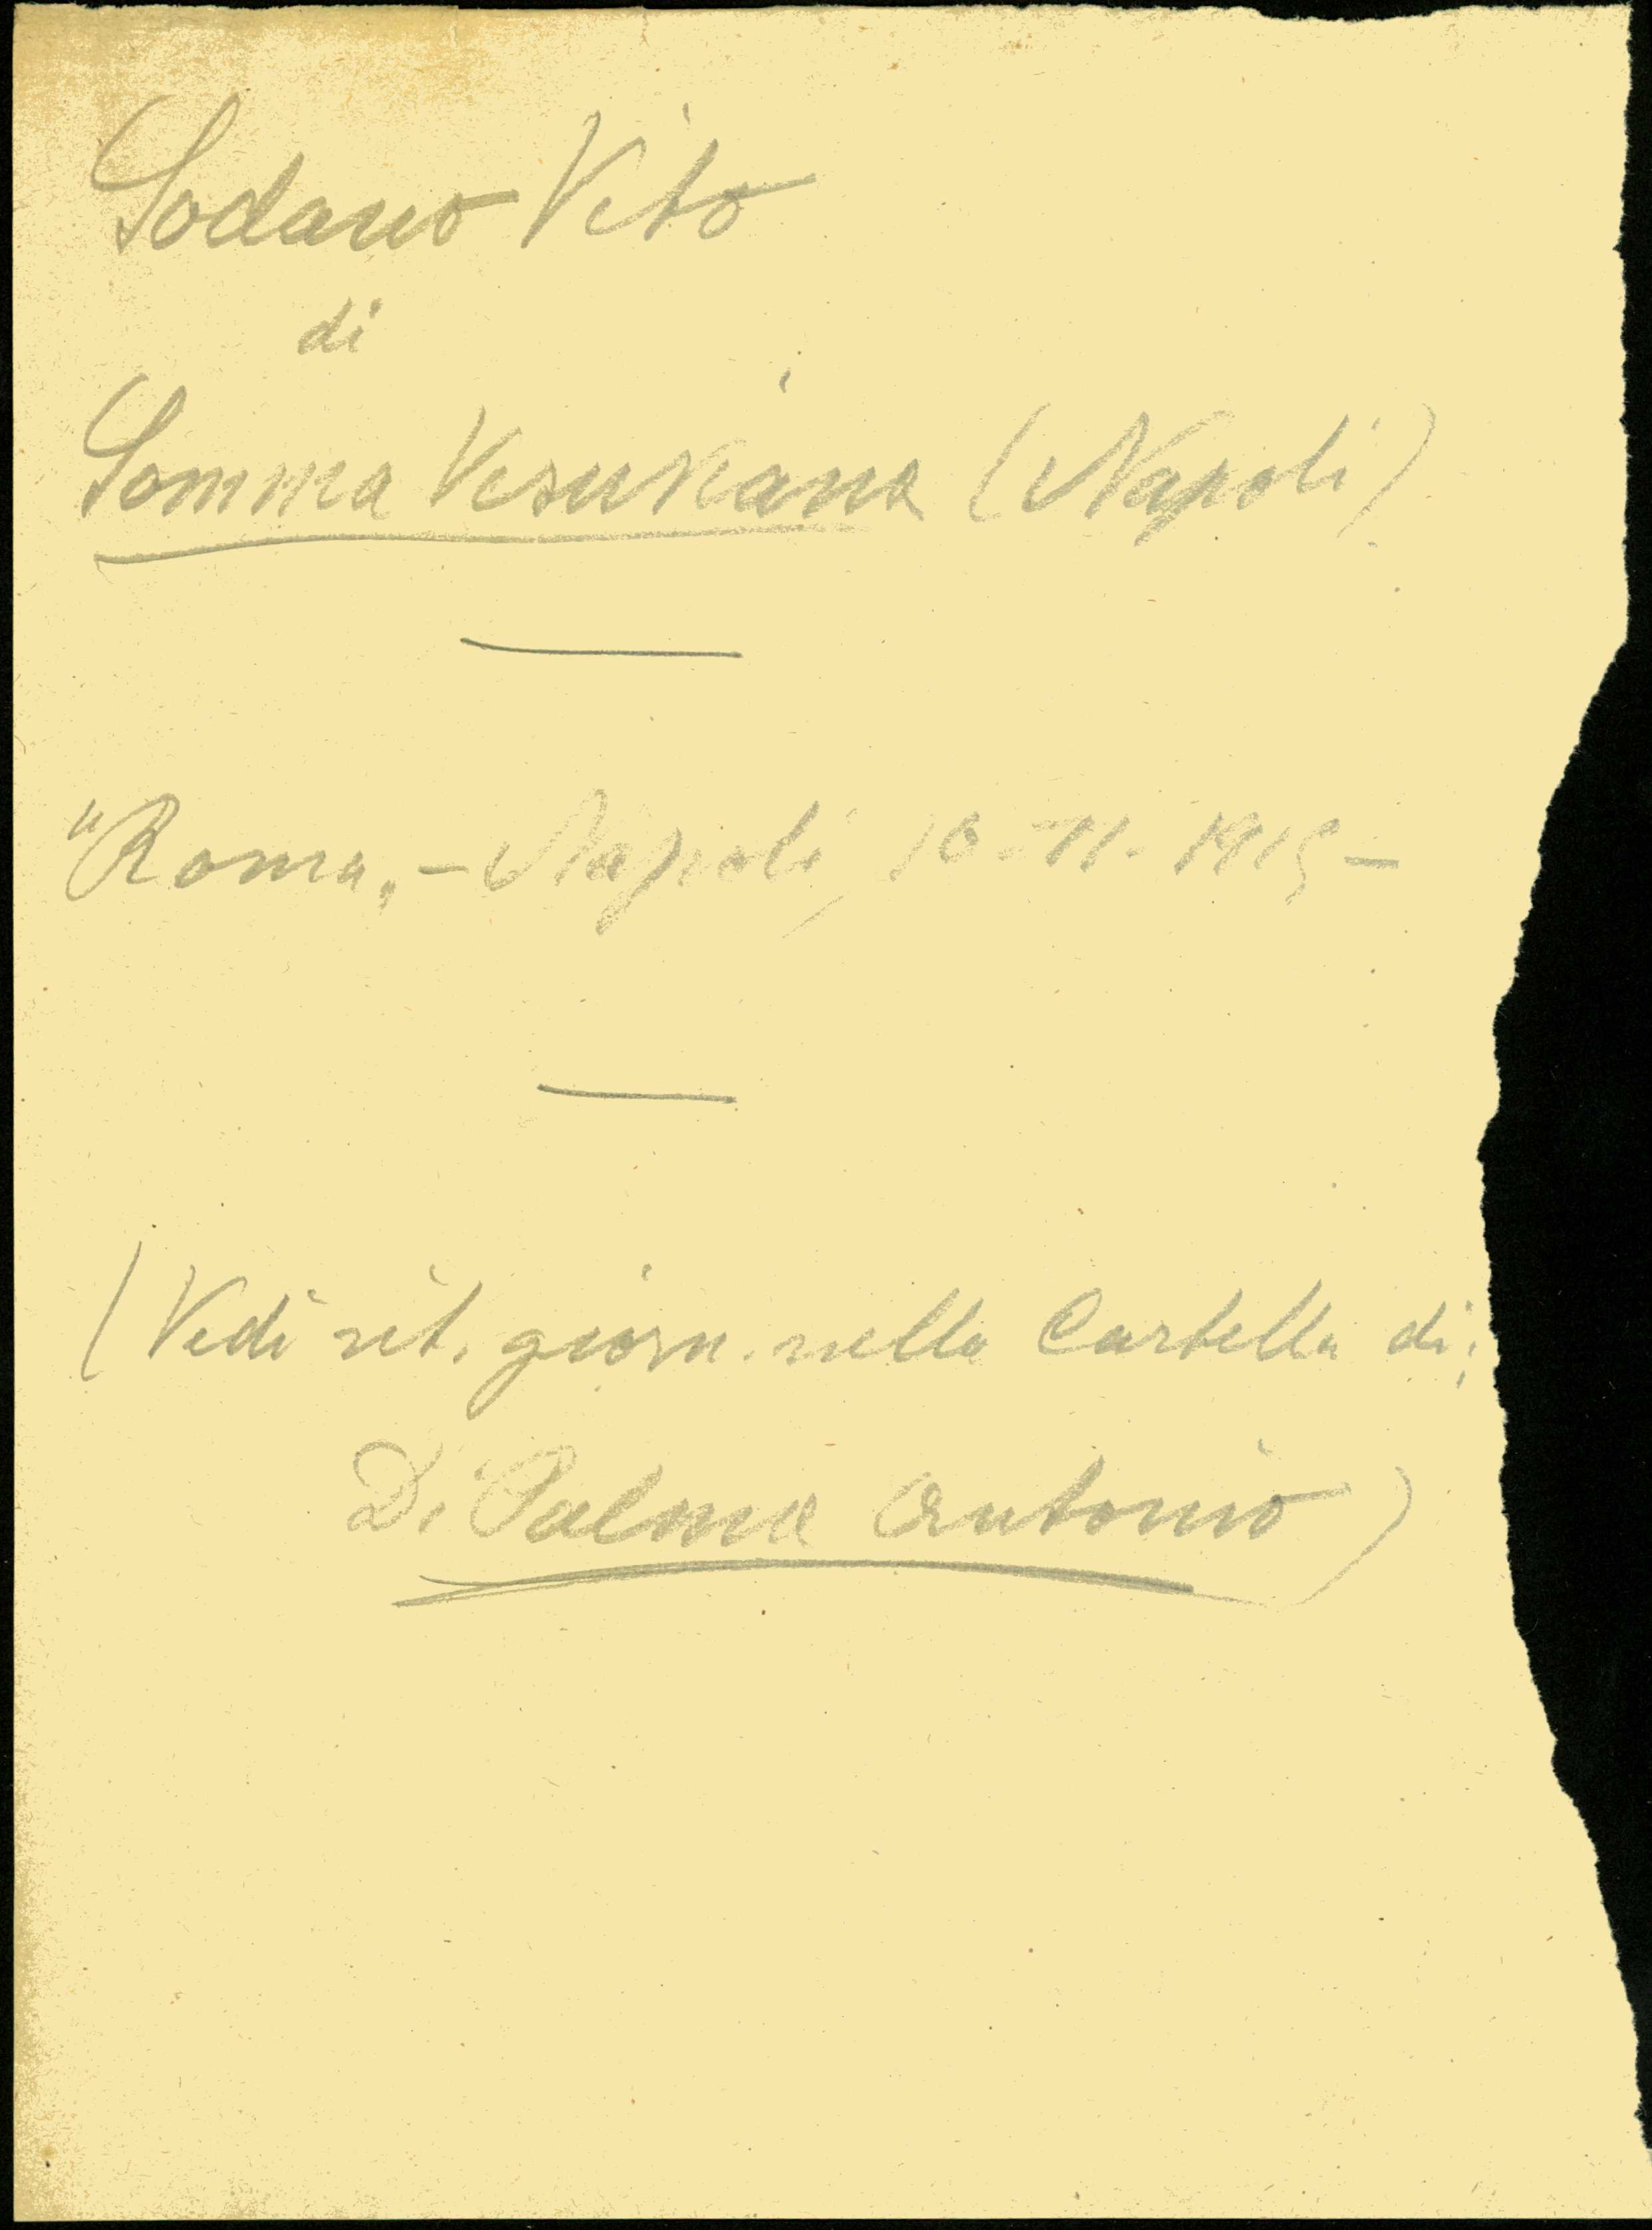 Sodano Vito
di
Somma Vesuviana (Napoli)
"Roma„ - Napoli, 16-11-1915 -
(Vedi rit. giorn. nella Cartella di:
Di Palma Antonio)